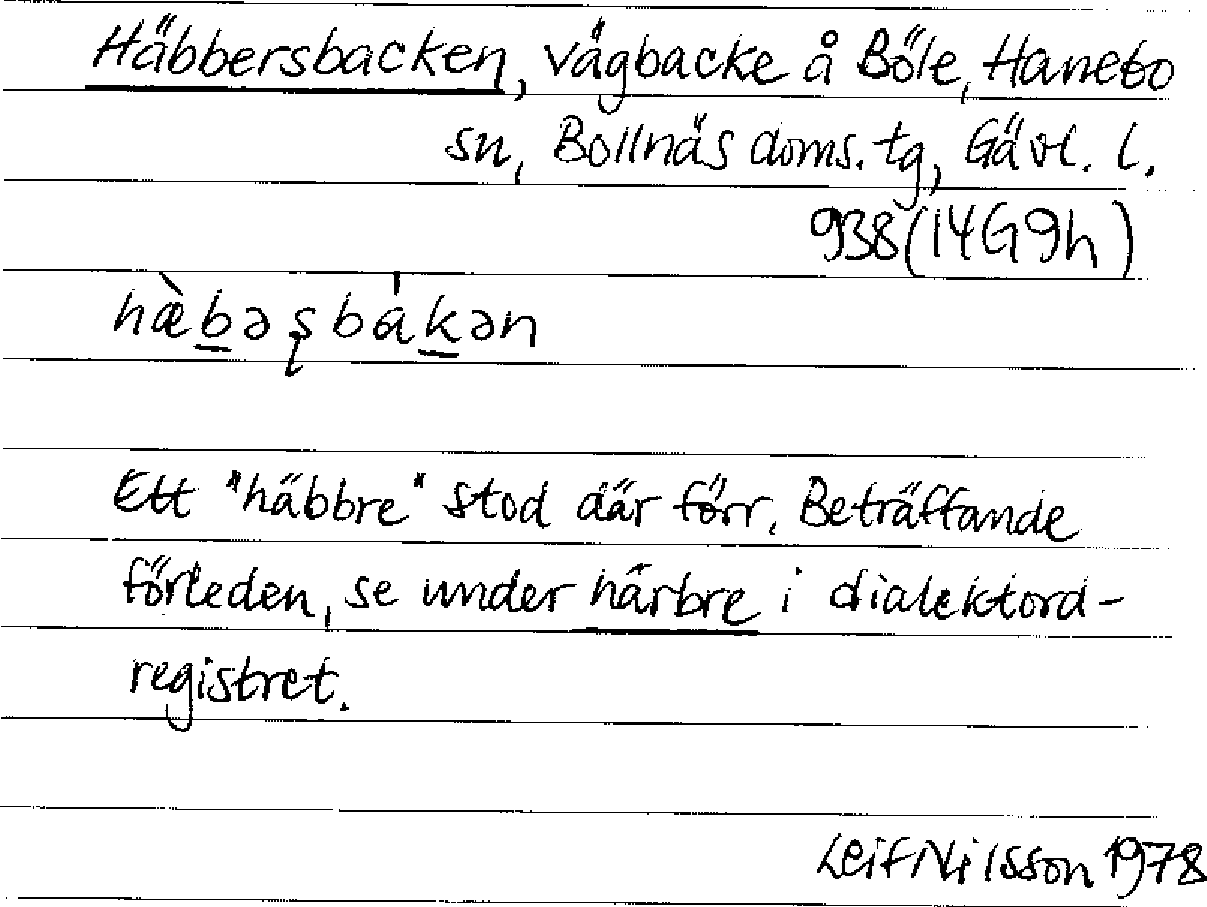 Häbbersbacken, vägbacke å Böle, Hanebo
sn, Bollnäs doms. tg, Gävl. l.
938 (14G9h)
hæ̀bəʂbákən
Ett "häbbre" stod där förr. Beträffande
förleden, se under härbre i dialektord-
registret.
Leif Nilsson 1978